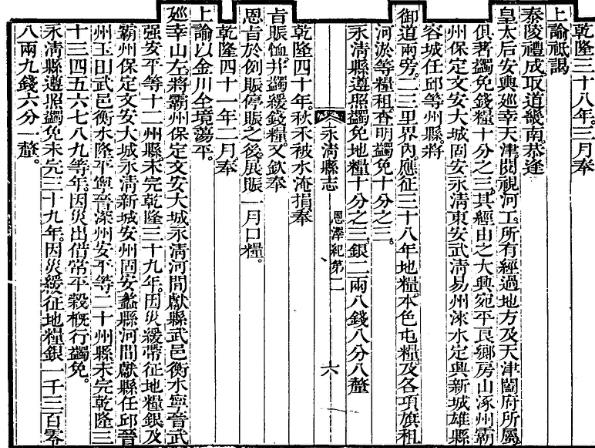 乾隆三十八年。三月奉
上諭祗謁
泰陵禮成。取道畿南。恭逢
皇太后安輿巡幸天津。閱視河工。所有經過地方及天津闔府所屬。
俱著蠲免錢糧十分之三。其經由之大興宛平良鄉房山涿州霸
州保定文安大城固安永清東安武清易州淶水定興新城雄縣
容城任邱等州縣。將
御道兩旁。一二三里界內。應征三十八年地糧。本色屯糧及各項旗租
河淤等糧租。查明蠲免十分之三。
永清縣遵照蠲免地糧十分之三。銀二兩八錢八分八釐
永清縣志
恩澤紀第二
六
乾隆四十年。秋禾被水淹損。奉
旨賑恤。并蠲緩錢糧。又欽奉
恩旨。於例賑停賑之後。展賑一月口糧。
乾隆四十一年。二月奉
上諭。以金川全境蕩平。
巡幸山左。將霸州保定文安大城永清河間獻縣武邑衡水寧晉武
強安平等十二州縣。未完乾隆三十九年。因災緩帶征地糧銀。及
霸州保定文安大城永清新城安州固安蠡縣河間獻縣任邱晉
州玉田武邑衡水隆平寧晉深州安平等二十州縣。未完乾隆三
十三四五六七八九等年。因災出借常平穀。槪行蠲免。
永清縣遵照蠲免未完三十九年。因災緩征地糧銀一千三百零
八兩九錢六分一釐。